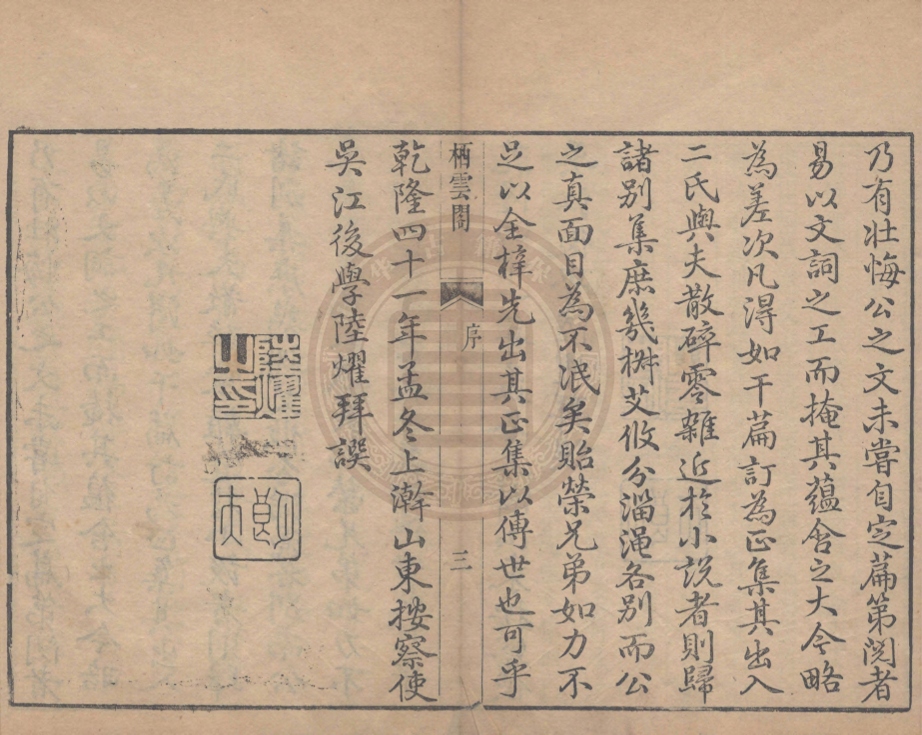 乃有壯悔公之文未嘗自定篇第閱者
易以文詞之工而掩其蘊含之大今略
為差次凡得如干篇訂為正集其出入
二氏與夫散碎零雜近於小說者則歸
諸別集庶幾椒艾攸分淄澠各別而公
之真面目為不泯矣貽榮兄弟如力不
足以全梓先出其正集以傳世也可乎
栖雲閣
序
三
乾隆四十一年孟冬上澣山東按察使
吳江後學陸燿拜譔
陸燿之印
朗夫